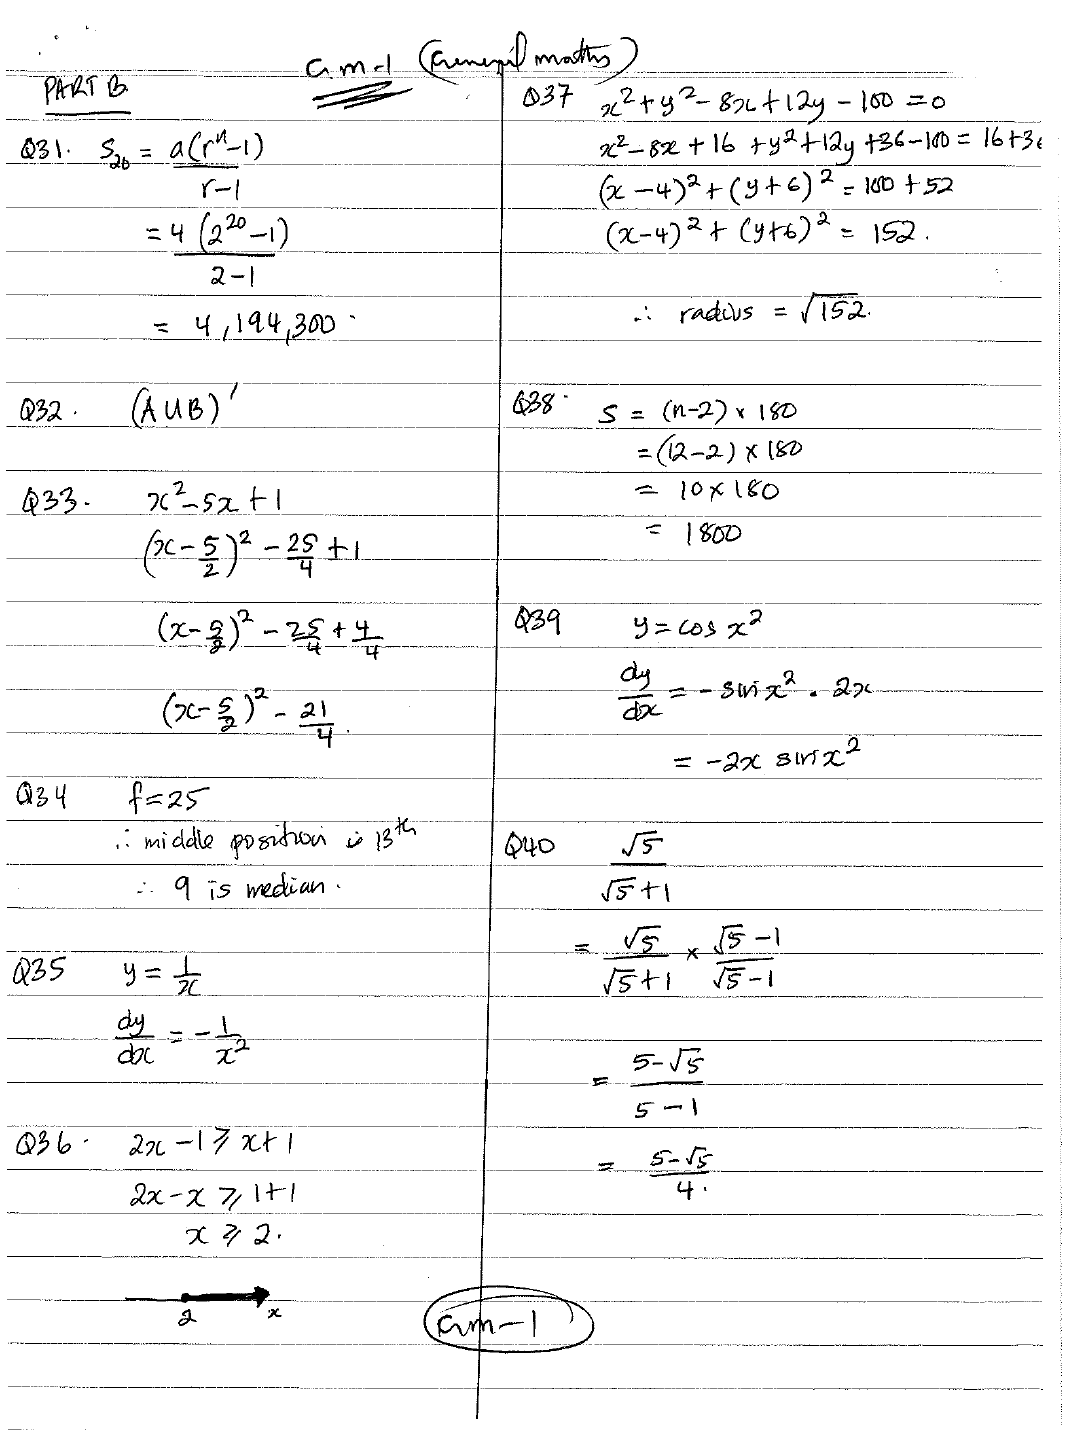 GM-1 (General maths)
PART B
Q31. S₂₀ = a(rⁿ-1)
r-1
= 4 (2²⁰-1)
2-1
= 4,194,300.
Q32. (A∪B)′
Q33. x²-5x+1
(x-5/2)² - 25/4 + 1
(x-5/2)² - 25/4 + 4/4
(x-5/2)² - 21/4.
Q34 f=25
∴ middle position is 13th
∴ 9 is median.
Q35 y = 1/x
dy/dx = -1/x²
Q36. 2x-1 ⩾ x+1
2x-x ⩾ 1+1
x ⩾ 2.
2 x
Q37 x²+y²-8x+12y-100=0
x²-8x+16+y²+12y+36-100 = 16+36
(x-4)²+(y+6)² = 100+52
(x-4)²+(y+6)² = 152.
∴ radius = √152.
Q38. S = (n-2) × 180
= (12-2) × 180
= 10×180
= 1800
Q39 y = cos x²
dy/dx = - sin x² . 2x
= -2x sin x²
Q40 √5
√5+1
= √5/√5+1 × √5-1/√5-1
= 5-√5
5-1
= 5-√5
4.
GM-1